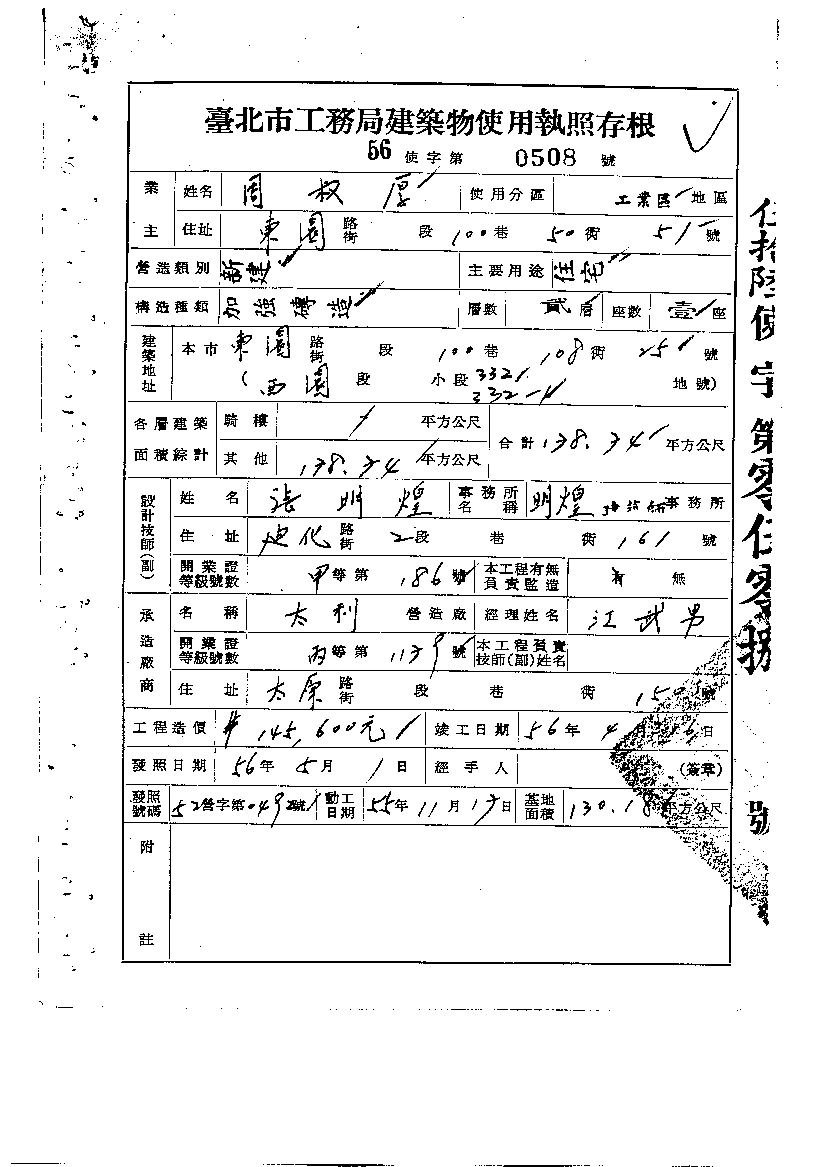 臺北市工務局建築物使用執照存根
56 使字第 0508 號
業主 姓名 周 叔 厚 使用分區 工業區 地區
住址 東園 路街 段 100巷 50衖 51 號
營造類別 新建 主要用途 住宅
構造種類 加強磚造 層數 貳層 座數 壹座
建築地址 本市 東園 路街 段 100巷 108衖 25 號
(西園 段 小段 332 332-4 地號)
各層建築面積綜計 騎樓 / 平方公尺 合計 138.34 平方公尺
其他 138.34 平方公尺
設計技師(副) 姓名 張明煌 事務所名稱 明煌 事務所
住址 迪化 路街 2段 巷 衖 161 號
開業證等級號數 甲等第 186 號 本工程有無負責監造 有 無
承造廠商 名稱 太利 營造廠 經理姓名 江武男
開業證等級號數 丙等第 號 本工程負責技師(副)姓名
住址 太原 路街 段 巷 衖 150 號
工程造價 145,600元 竣工日期 56年 4月 日
發照日期 56年 5月 1日 經手人 (簽章)
發照號碼 營字第 號 動工日期 55年 11月 日 基地面積 130.18 平方公尺
附註
伍拾陸使字第零伍零捌號